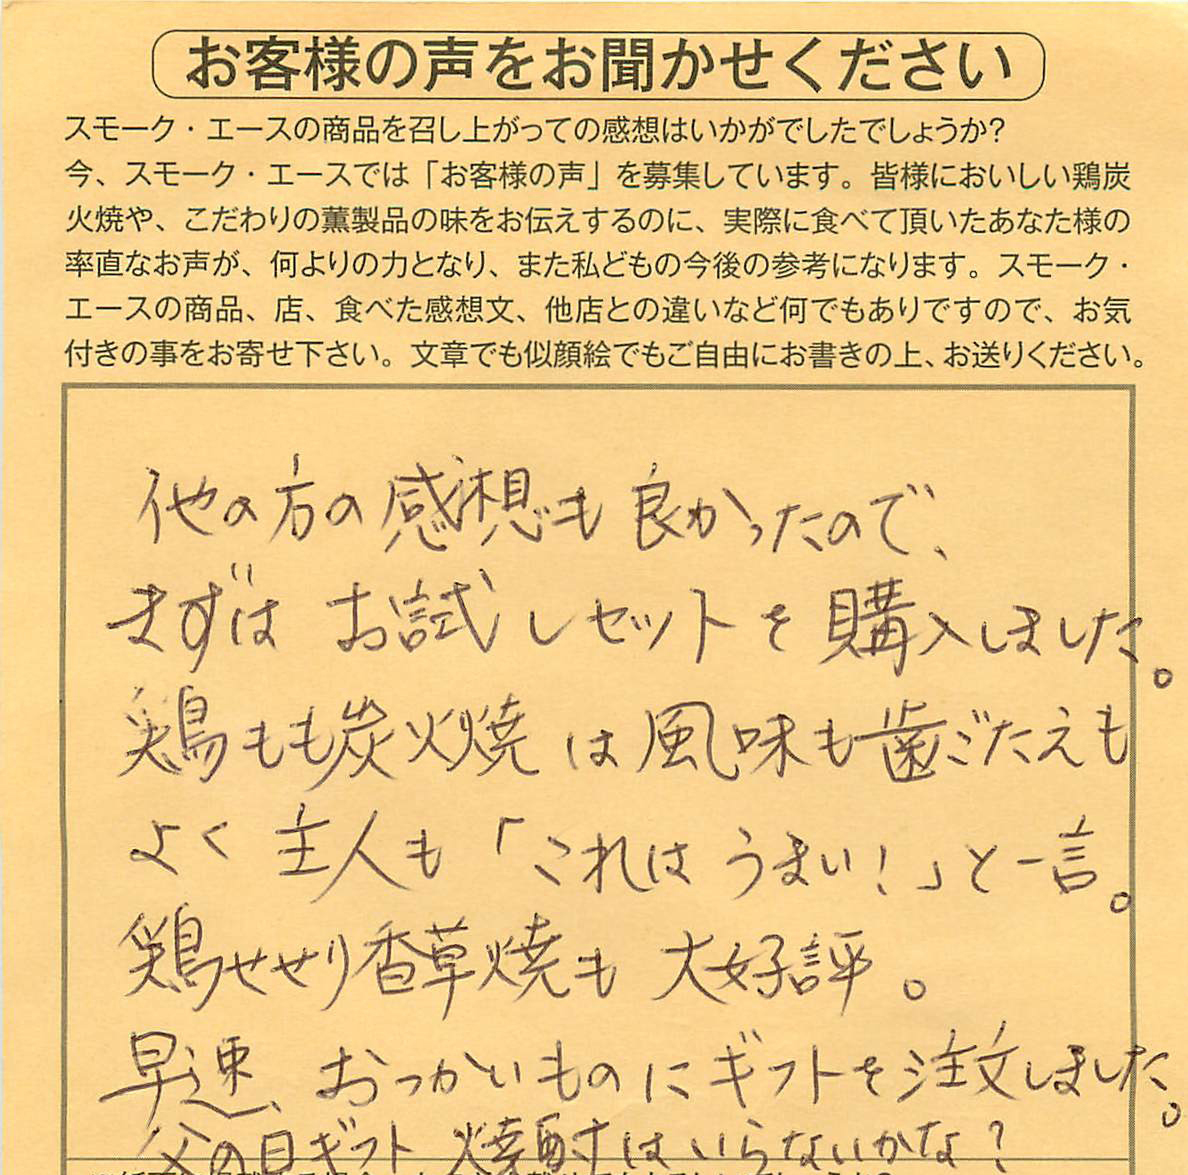 お客様の声をお聞かせください
スモーク・エースの商品を召し上がっての感想はいかがでしたでしょうか?
今、スモーク・エースでは「お客様の声」を募集しています。皆様においしい鶏炭
火焼や、こだわりの薫製品の味をお伝えするのに、実際に食べて頂いたあなた様の
率直なお声が、何よりの力となり、また私どもの今後の参考になります。スモーク・
エースの商品、店、食べた感想文、他店との違いなど何でもありですので、お気
付きの事をお寄せ下さい。文章でも似顔絵でもご自由にお書きの上、お送りください。
他の方の感想も良かったので、
まずは お試しセットを購入しました。
鶏もも炭火焼は風味も歯ごたえも
よく主人も「これはうまい!」と一言。
鶏せせり香草焼も大好評。
早速、おつかいものにギフトを注文しました。
父の日ギフト 焼酎はいらないかな?